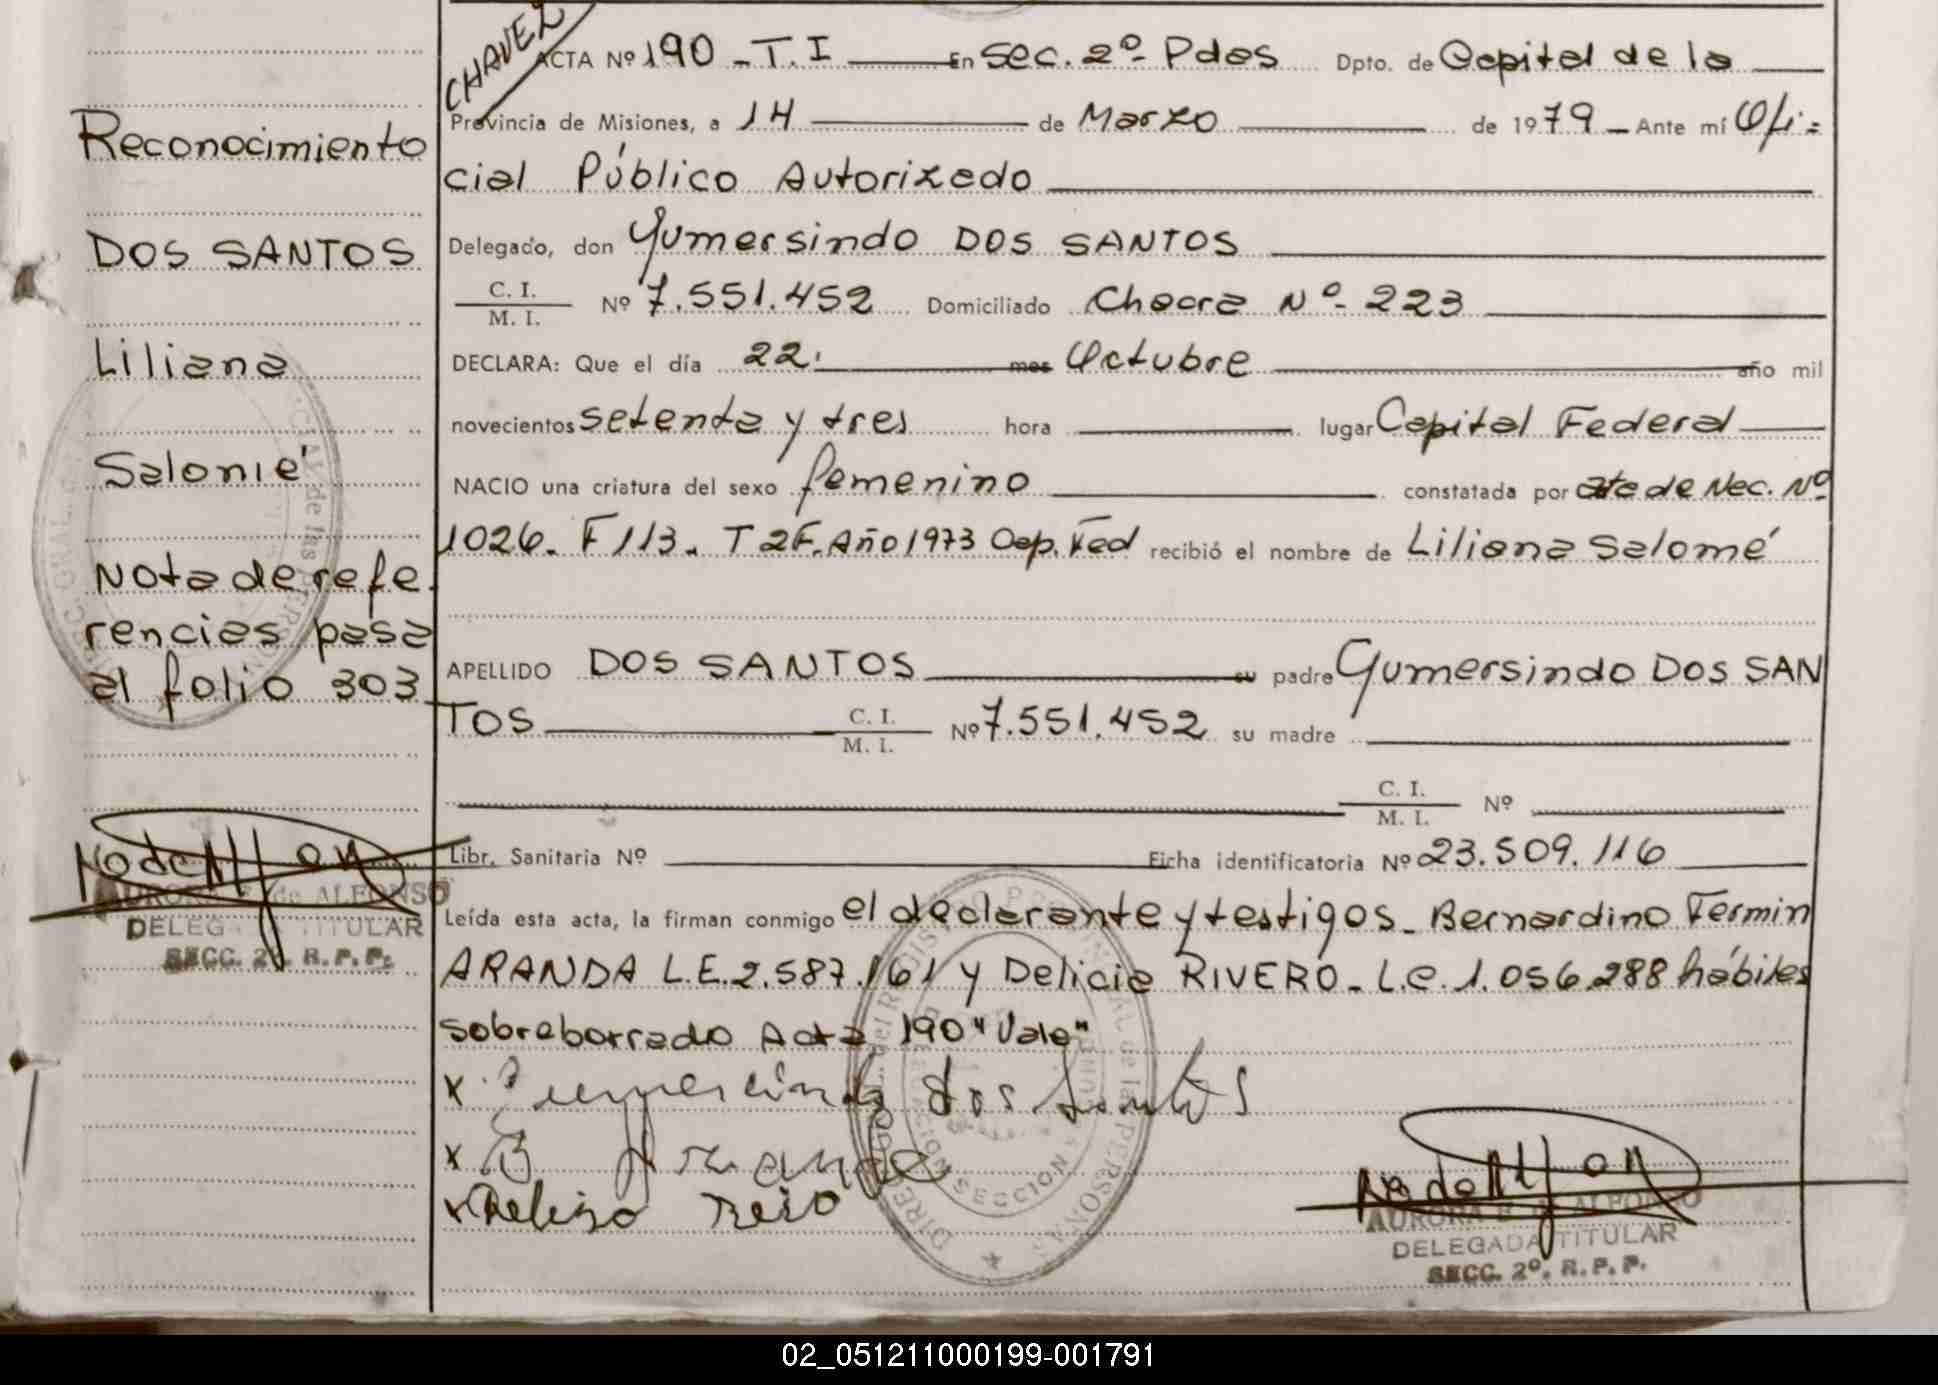 CHAVEZ
ACTA Nº 190 - T. I En Sec. 2º Pdas Dpto. de Capital de la
Provincia de Misiones, a 14 de Marzo de 1979 - Ante mí Ofi=
cial Público Autorizado
Delegado, don Gumersindo DOS SANTOS
C. I.
M. I. Nº 7.551.452 Domiciliado Chacra Nº 223
DECLARA: Que el día 22. mes Octubre año mil
novecientos setenta y tres hora lugar Capital Federal
NACIO una criatura del sexo femenino constatada por de Nac. Nº
1026. F 113. T 2F. Año 1973 Cap. Fed recibió el nombre de Liliana Salomé
APELLIDO DOS SANTOS su padre Gumersindo DOS SAN
TOS C. I. M. I. Nº 7.551.452 su madre
C. I.
M. I. Nº
Libr. Sanitaria Nº Ficha identificatoria Nº 23.509.116
Leída esta acta, la firman conmigo el declarante y testigos - Bernardino Fermin
ARANDA L.E. 2.587.161 y Delicia RIVERO - L.C. 1.056.288 hábiles
sobreborrado Acta 190 "Vale"
x Gumersindo dos Santos
x B Aranda
x
AURORA E. de ALFONSO
DELEGADA TITULAR
SECC. 2º. R. P. P.
Reconocimiento
DOS SANTOS
Liliana
Salomé
Nota de refe
rencias pasa
al folio 303
AURORA E. de ALFONSO
DELEGADA TITULAR
SECC. 2º. R. P. P.
02_051211000199-001791